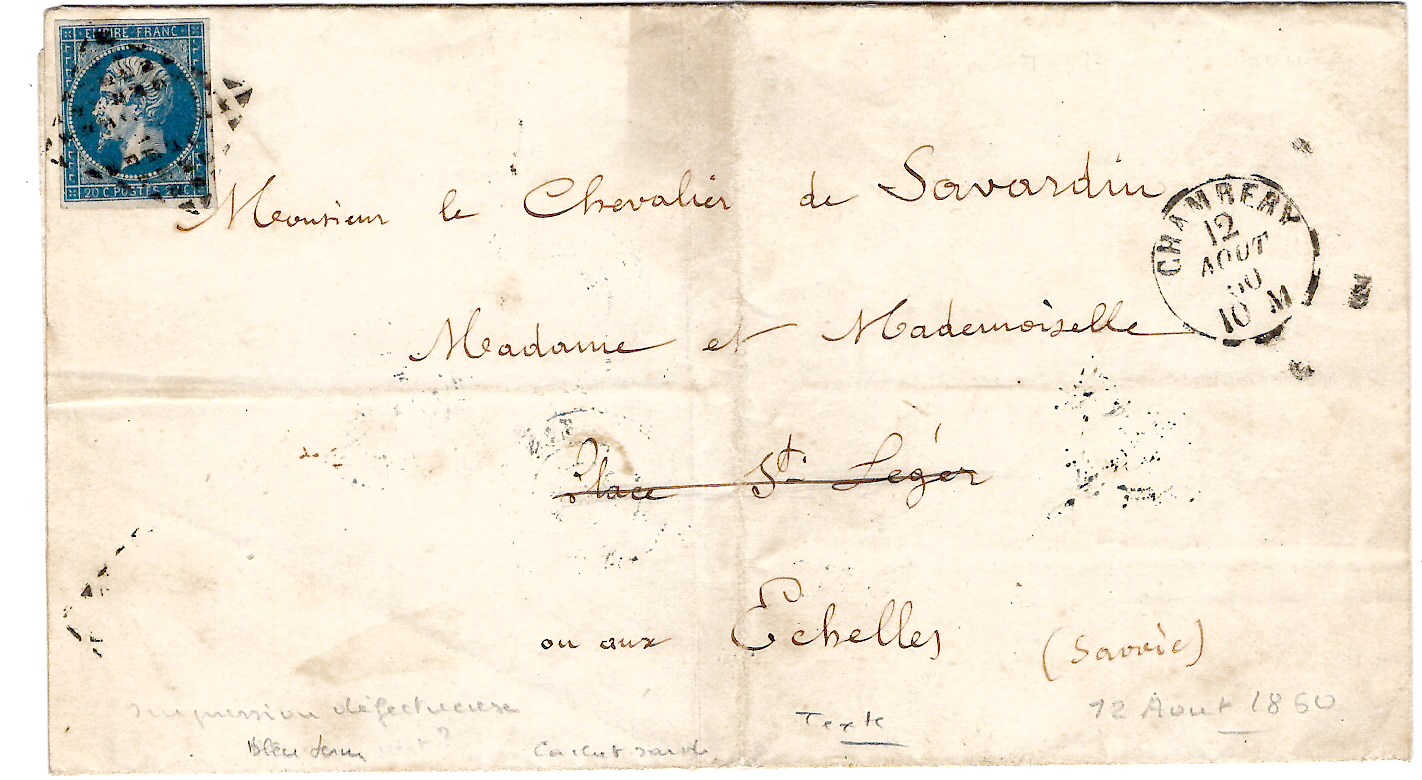 EMPIRE FRANC
20 C POSTES 20 C
Monsieur le Chevalier de Savardin
CHAMBERY
12
AOUT
60
10 M
Madame et Mademoiselle
Place St Léger
ou aux Echelles (Savoie)
impression défectueuse
12 Aout 1860
Texte
Bleu
Cachet sarde